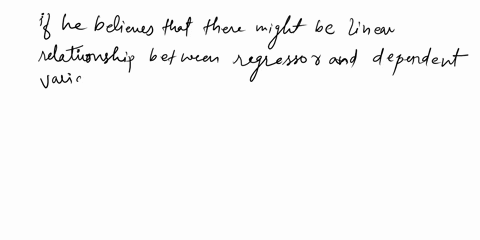 if he believes that there might be linear
relationship between regressor and dependent
varia